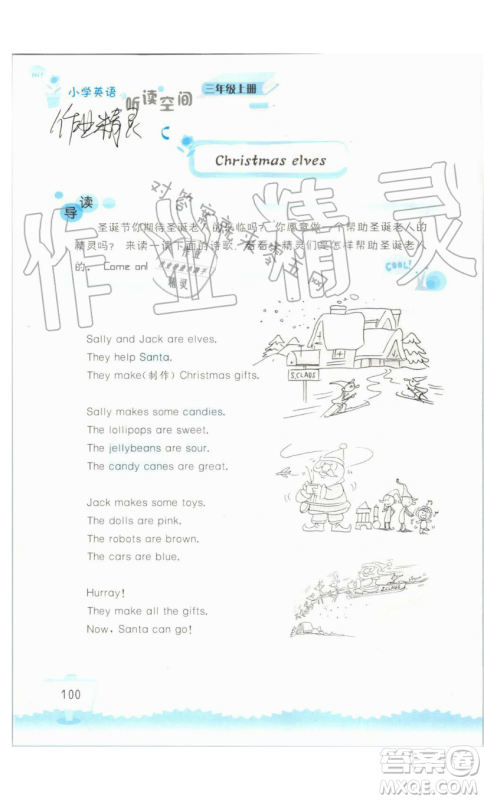 小学英语
听读空间
三年级上册
作业精灵
C
Christmas elves
导读
圣诞节你期待圣诞老人的光临吗？你愿意做一个帮助圣诞老人的
精灵吗？来读一读下面的诗歌，看看小精灵们是怎样帮助圣诞老人
的。Come on!
COOL!
作业精灵
Sally and Jack are elves.
They help Santa.
They make(制作) Christmas gifts.
S.CLAUS
Sally makes some candies.
The lollipops are sweet.
The jellybeans are sour.
The candy canes are great.
Jack makes some toys.
The dolls are pink.
The robots are brown.
The cars are blue.
Hurray!
They make all the gifts.
Now, Santa can go!
100
答案圈
MXQE.COM